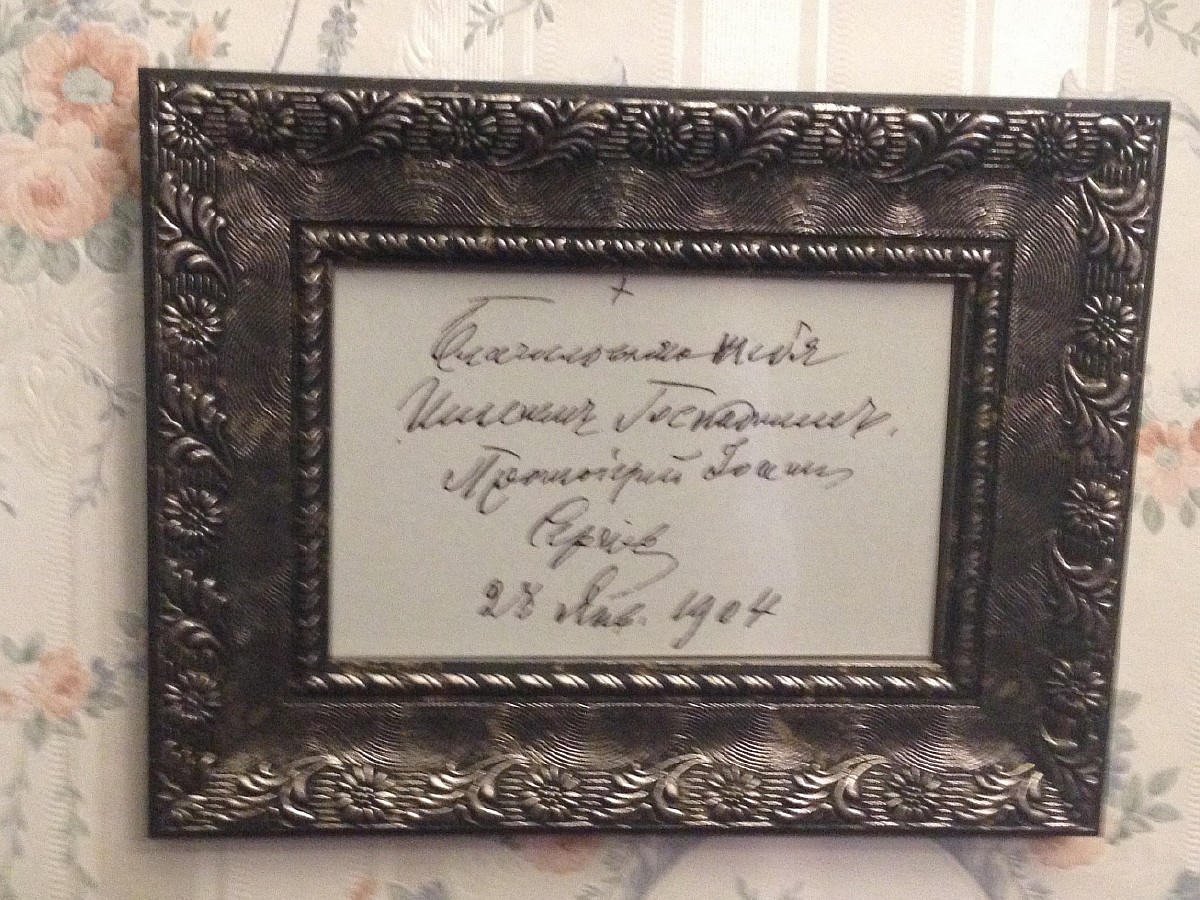 +
Благословляю тебя
Именем Господним.
Протоіерей Іоанн
Сергіев
28 Янв. 1904